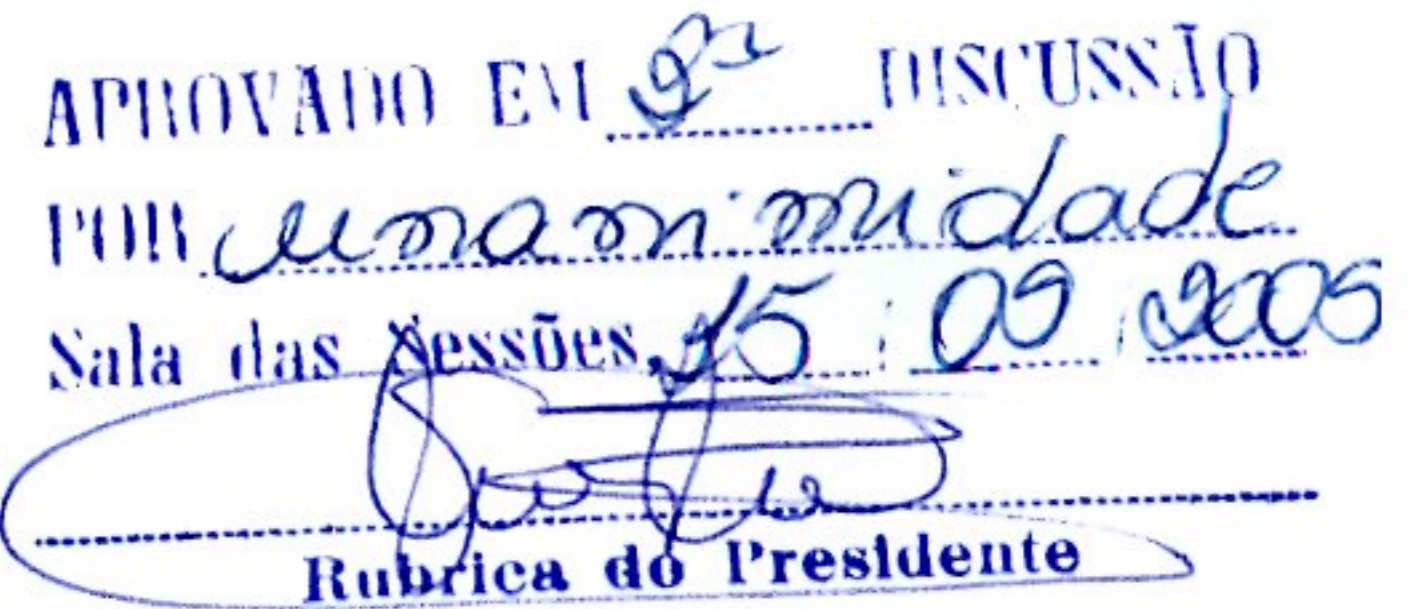 APROVADO EM 2ª DISCUSSÃO
POR unanimidade
Sala das Sessões, 15 / 09 / 2005
Rubrica do Presidente